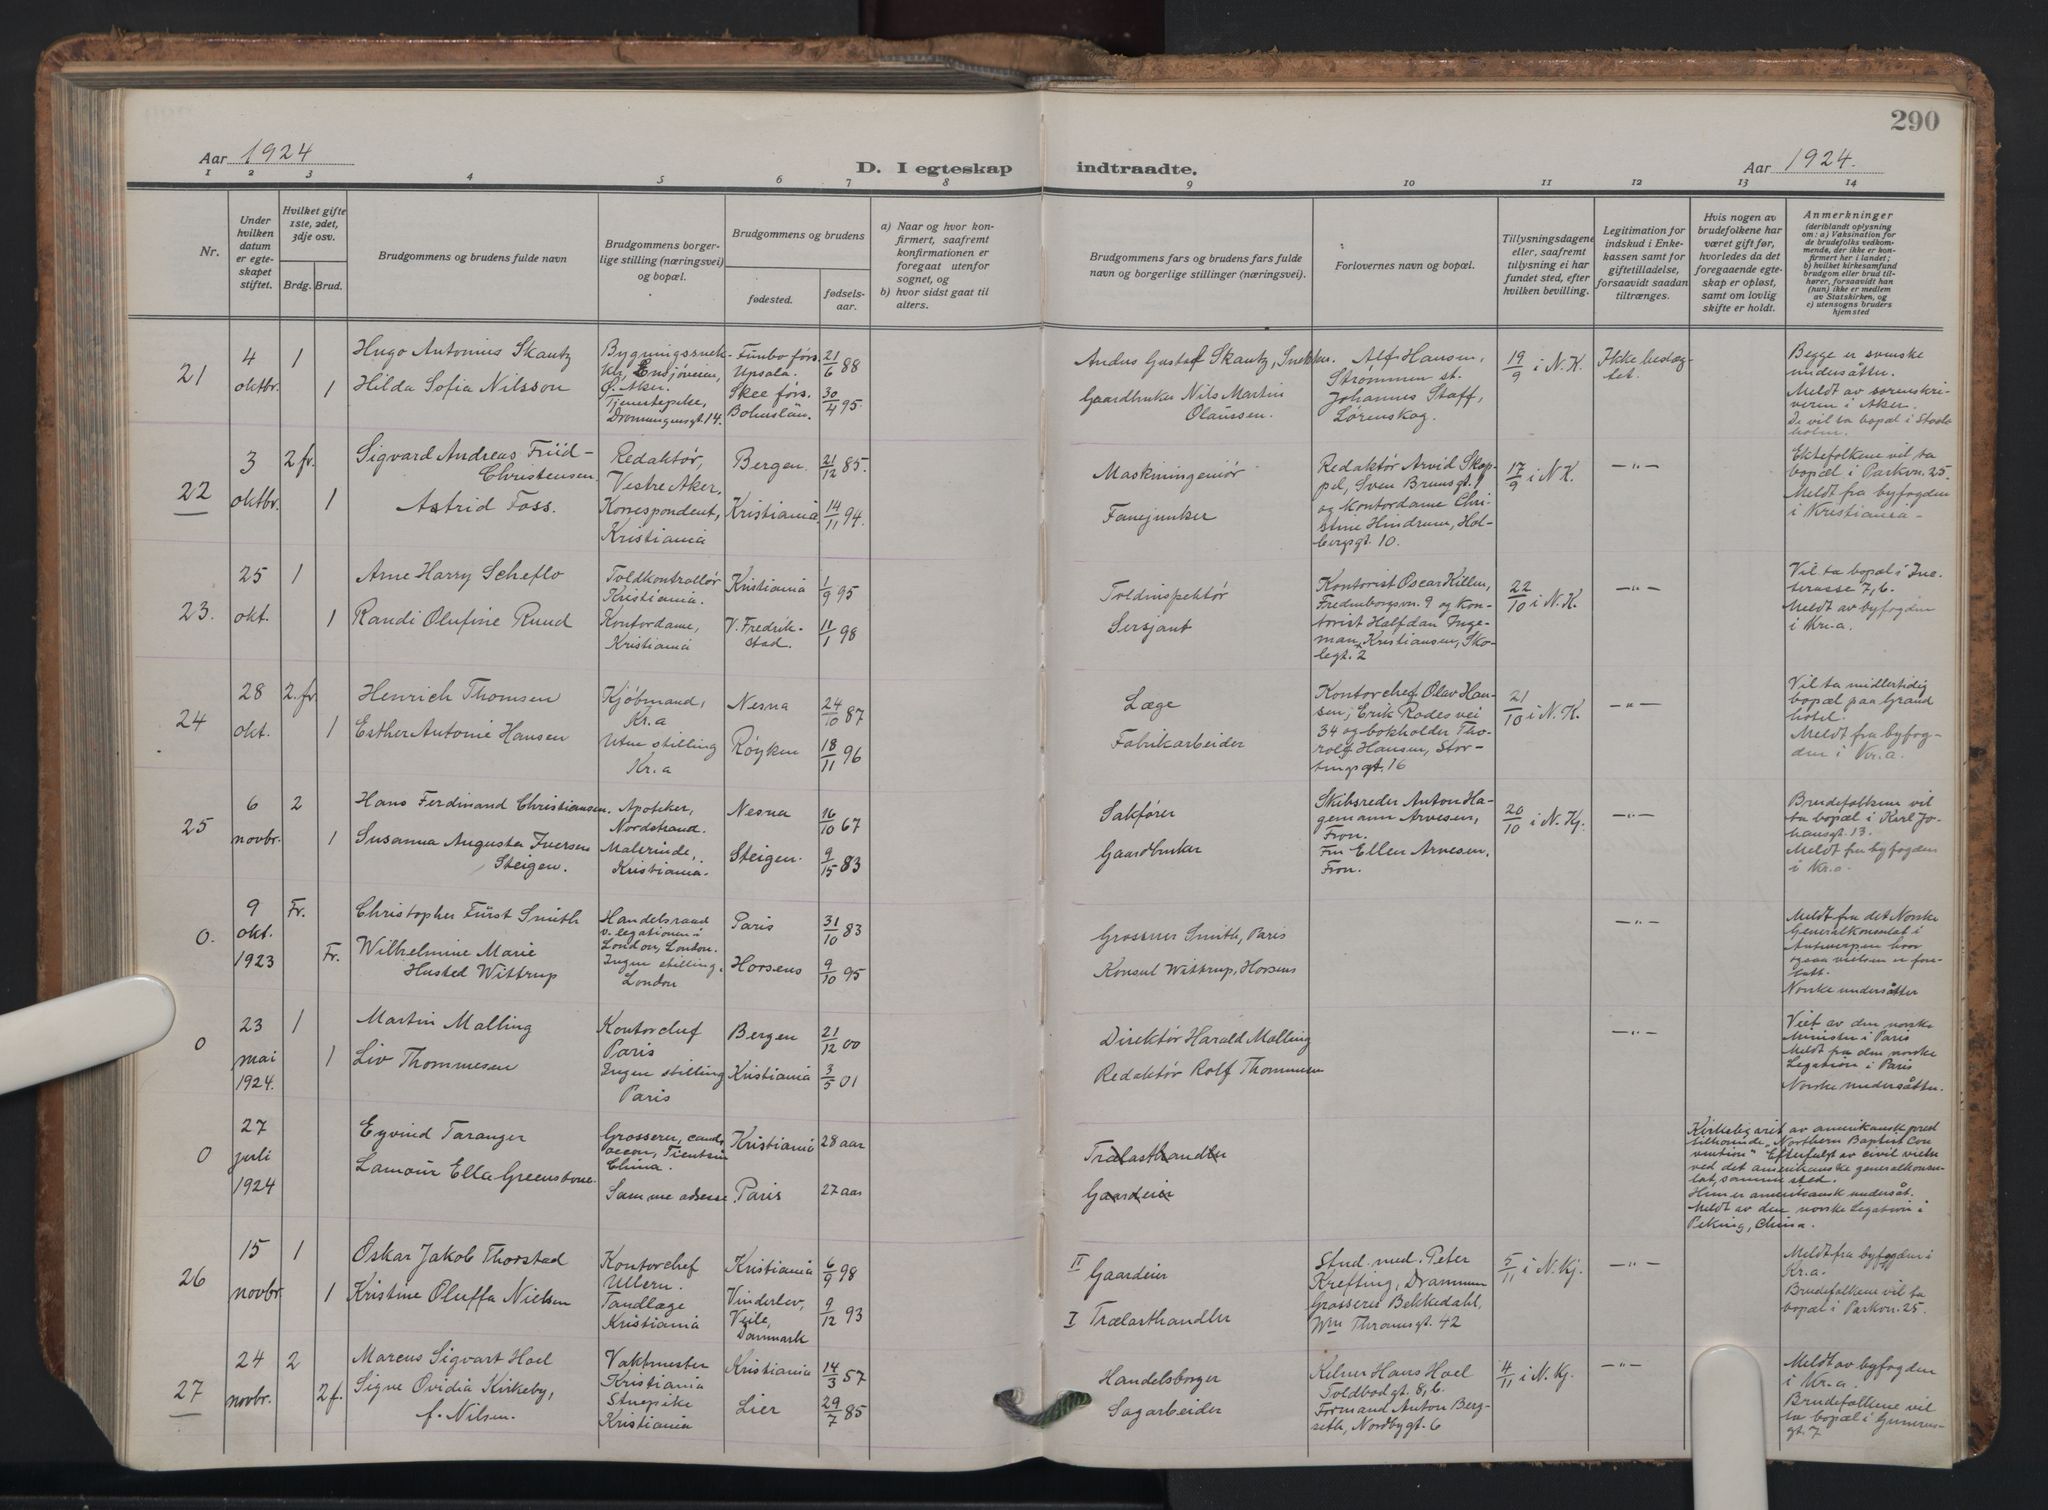 290
Aar 1924
D. I egteskap indtraadte.
Aar 1924.
1 2 3 4 5 6 7 8 9 10 11 12 13 14
Nr.
Under hvilken datum er egteskapet stiftet.
Hvilket gifte 1ste, 2det, 3dje osv.
Brdg. Brud.
Brudgommens og brudens fulde navn
Brudgommens borgerlige stilling (næringsvei) og bopæl.
Brudgommens og brudens
fødested.
fødselsaar.
a) Naar og hvor konfirmert, saafremt konfirmationen er foregaat utenfor sognet, og
b) hvor sidst gaat til alters.
Brudgommens fars og brudens fars fulde navn og borgerlige stillinger (næringsvei).
Forlovernes navn og bopæl.
Tillysningsdagene eller, saafremt tillysning ei har fundet sted, efter hvilken bevilling.
Legitimation for indskud i Enkekassen samt for giftetilladelse, forsaavidt saadan tiltrænges.
Hvis nogen av brudefolkene har været gift før, hvorledes da det foregaaende egteskap er opløst, samt om lovlig skifte er holdt.
Anmerkninger
(deriblandt oplysning om: a) Vaksination for de brudefolks vedkommende, der ikke er konfirmert her i landet; b) hvilket kirkesamfund brudgom eller brud tilhører, forsaavidt han (hun) ikke er medlem av Statskirken, og c) utensogns bruders hjemsted
21
4 oktbr.
1
1
Hugo Antonius Skantz
Hilda Sofia Nilsson
Ø. Aker.
Tjenestepike,
Dronningensgt. 14.
Funbo förs. Upsala.
Skee förs. Bohuslän.
21/6 88
30/4 95.
Anders Gustaf Skantz, Snekker.
Gaardbruker Nils Martin Olaussen.
Alf Hansen,
Strømmen st.
Johannes Staff,
Lørenskog.
19/9 i N.K.
Ikke bestægtet.
Begge er svenske
undersåtter.
Meldt av sorenskriveren
i Aker.
De vil ta bopæl i Stockholm.
22
3 oktbr.
2 fr.
1
Sigvard Andreas Friid-
Christensen
Astrid Foss.
Redaktør,
Vestre Aker,
Korrespondent,
Kristiania
Bergen
Kristiania.
21/12 85.
14/11 94.
Maskiningeniør
Fanejunker
Redaktør Arvid Skappel,
Sven Brunsgt. 1
og Kontordame Christine
Hindrum, Holbergsgt. 10.
17/9 i N.K.
—"—
Ektefolkene vil ta
bopæl i Parkvn. 25.
Meldt fra byfogden
i Kristiania
23.
25 okt.
1
1
Arne Harry Scheflo
Randi Olufine Ruud
Toldkontrollør
Kristiania.
Kontordame,
Kristiania
Kristiania
V. Fredrikstad.
1/9 95
11/1 98
Toldinspektør
Sersjant
Kontorist Oscar Killen,
Fredensborgvn. 9 og kontorist
Halfdan Ingeman
Kristiansen, Skolegt. 2
22/10 i N.K.
—"—
Vil ta bopæl i
terasse 7, 6.
Meldt av byfogden
i Kr.a.
24
28 okt.
2. fr
1
Henrich Thomsen
Esther Antonie Hansen
Kjøbmand,
Kr.a
Uten stilling
Kr.a
Nesna
Røyken
24/10 87
18/11 96
Læge
Fabrikarbeider
Kontorchef Olav Hansen,
Erik Rodes vei
34 og bokholder Thorolf
Hansen, Stortingsgt. 16
21/10 i N.K.
—"—
Vil ta midlertidig
bopæl paa Grand
hotel.
Meldt fra byfogden
i Kr.a.
25
6 novbr.
2
1
Hans Ferdinand Christiansen.
Susanna Augusta Iversen
Steigen.
Apoteker,
Nordstrand.
Malerinde,
Kristiania.
Nesna
Steigen.
16/10 67
9/15 83
Sakfører
Gaardbruker
Skibsreder Anton Hagemann
Arvesen,
Fron.
Fru Ellen Arvesen,
Fron.
20/10 i N.Kj.
—"—
Brudefolkene vil
ta bopæl i Karl Johansgt. 13.
Meldt fra byfogden
i Kr.a.
0.
9 okt. 1923
Fr.
Fr.
Christopher Fürst Smith
Wilhelmine Marie
Husted Wittrup
Handelsraad
v. legationen i
London, London.
Ingen stilling.
London
Paris
Horsens
31/10 83
9/10 95
Grosserer Smith, Paris
Konsul Wittrup, Horsens
—"—
Meldt fra det Norske
Generalkonsulat i
Antwerpen hvor
ogsaa vielsen er foretatt.
Norske undersåtter
0
23 mai 1924.
1
1
Martin Malling
Liv Thommesen
Kontorchef
Paris
Ingen stilling
Paris
Bergen
Kristiania
21/12 00
3/5 01
Direktør Harald Malling
Redaktør Rolf Thommesen
—"—
Viet av den norske
Minister i Paris
Meldt fra den norske
Legation i Paris
Norske undersåtter.
0
27 juli 1924
Eyvind Taranger
Lamour Ella Greenstone
Grosserer, cand.
oecon, Tientsin
China.
Samme adresse.
Kristiania
Paris
28 aar
27 aar
Trælasthandler
Gaardeier
Kirkelig viet av amerikansk
"Northern Baptist Convention"
Efterfulgt av civil vielse
ved det amerikanske generalkonsulat,
samme sted.
Hun er amerikansk undersåt.
Meldt av den norske legation i
Peking, China.
26
15 novbr.
1
1
Oskar Jakob Thorstad
Kristine Oluffa Nielsen
Kontorchef
Ullern.
Tandlæge
Kristiania
Kristiania
Vinderlev,
Veile,
Danmark
6/9 98
9/12 93
II Gaardeier
I Trælasthandler
Stud. med. Peter
Krefting, Drammen
Grosserer Bekkedahl,
Wm Thranesgt. 42
5/11 i N.Kj.
—"—
Meldt fra byfogden i
Kr.a.
Brudefolkene vil ta
bopæl i Parkvn. 25.
27
24 novbr.
2
2 f.
Marcus Sigvart Hoel
Signe Ovidia Kirkeby,
f. Nilsen.
Vaktmester
Kristiania
Strepike
Kristiania
Kristiania
Lier
14/3 57
29/7 85
Handelsborger
Sagarbeider
Kelner Hans Hoel
Toldbodgt. 8, 6.
Formand Anton Bergseth,
Nordbygt. 6
4/11 i N.Kj.
—"—
Meldt av byfogden
i Kr.a.
Brudefolkene vil
ta bopæl i
gt. 7